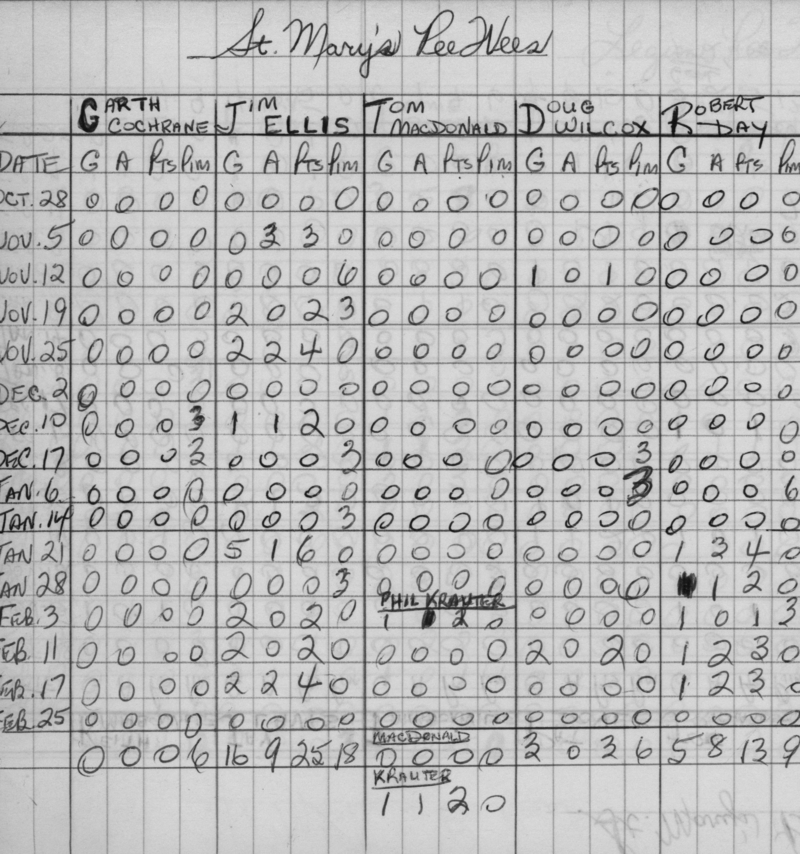 St. Mary's PeeWees
GARTH COCHRANE JIM ELLIS TOM MACDONALD DOUG WILCOX ROBERT DAY
DATE G A Pts Pim G A Pts Pim G A Pts Pim G A Pts Pim G A Pts Pim
OCT. 28 0 0 0 0 0 0 0 0 0 0 0 0 0 0 0 0 0 0 0 0
NOV. 5 0 0 0 0 0 3 3 0 0 0 0 0 0 0 0 0 0 0 0 0
NOV. 12 0 0 0 0 0 0 0 6 0 0 0 0 1 0 1 0 0 0 0 0
NOV. 19 0 0 0 0 2 0 2 3 0 0 0 0 0 0 0 0 0 0 0 0
NOV. 25 0 0 0 0 2 2 4 0 0 0 0 0 0 0 0 0 0 0 0 0
DEC. 2 0 0 0 0 0 0 0 0 0 0 0 0 0 0 0 0 0 0 0 0
DEC. 10 0 0 0 3 1 1 2 0 0 0 0 0 0 0 0 0 0 0 0 0
DEC. 17 0 0 0 3 0 0 0 3 0 0 0 0 0 0 0 3 0 0 0 0
JAN. 6 0 0 0 0 0 0 0 0 0 0 0 0 0 0 0 3 0 0 0 6
JAN. 14 0 0 0 0 0 0 0 3 0 0 0 0 0 0 0 0 0 0 0 0
JAN 21 0 0 0 0 5 1 6 0 0 0 0 0 0 0 0 0 1 3 4 0
JAN 28 0 0 0 0 0 0 0 3 0 0 0 0 0 0 0 0 1 2 0
PHIL KRAUTER
FEB. 3 0 0 0 0 2 0 2 0 1 2 0 0 0 0 0 1 0 1 3
FEB. 11 0 0 0 0 2 0 2 0 0 0 0 0 2 0 2 0 1 2 3 0
FEB. 17 0 0 0 0 2 2 4 0 0 0 0 0 0 0 0 0 1 2 3 0
FEB. 25 0 0 0 0 0 0 0 0 0 0 0 0 0 0 0 0 0 0 0 0
MACDONALD
0 0 0 6 16 9 25 18 0 0 0 0 3 0 3 6 5 8 13 9
KRAUTER
1 1 2 0